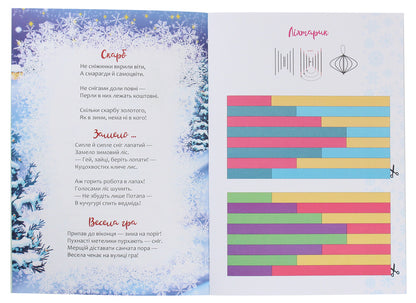 Скарб
Не сніжинки вкрили віти,
А смарагди й самоцвіти.
Не снігами доли повні —
Перли в них лежать коштовні.
Скільки скарбу золотого,
Як в зими, нема ні в кого!
Замело ...
Сипле й сипле сніг лапатий —
Замело зимовий ліс.
— Гей, зайці, беріть лопати! —
Куцохвостих кличе лис.
Аж горить робота в лапах!
Голосами ліс шумить.
— Не збудіть лише Потапа —
В кучугурі спить ведмідь!
Весела гра
Припав до віконця — зима на поріг!
Пухнасті метелики пурхають — сніг.
Мерщій діставати санчата пора —
Весела чекає на вулиці гра!
Ліхтарик